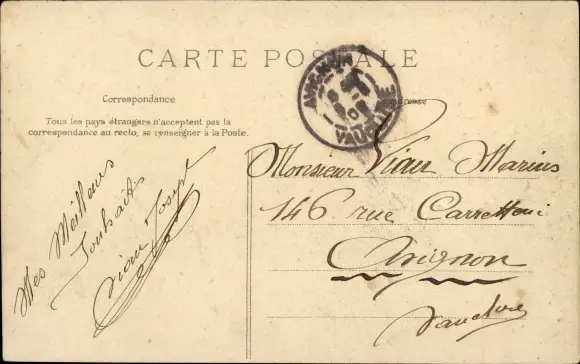 CARTE POSTALE
AVIGNON
VAUCLUSE
Correspondance
Tous les pays étrangers n'acceptent pas la
correspondance au recto, se renseigner à la Poste.
Mes Meilleurs
Souhaits
Vian Joseph
Monsieur Vian Marius
146 rue Carretterie
Avignon
Vaucluse